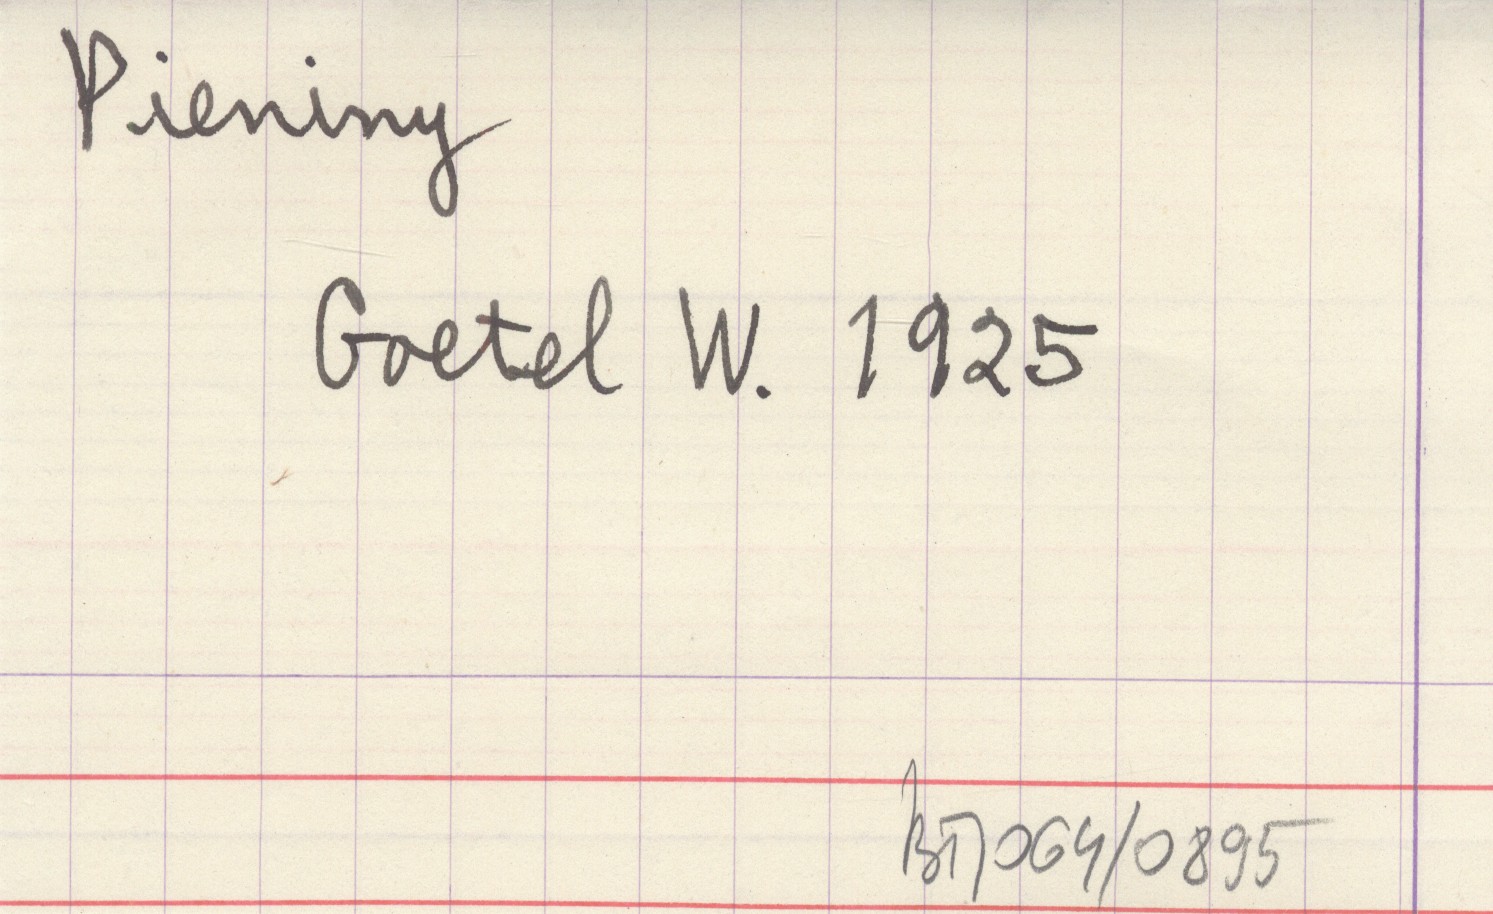 Pieniny
Goetel W. 1925
BT/064/0895